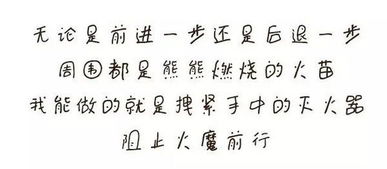 无论是前进一步还是后退一步
周围都是熊熊燃烧的火苗
我能做的就是拽紧手中的灭火器
阻止火魔前行